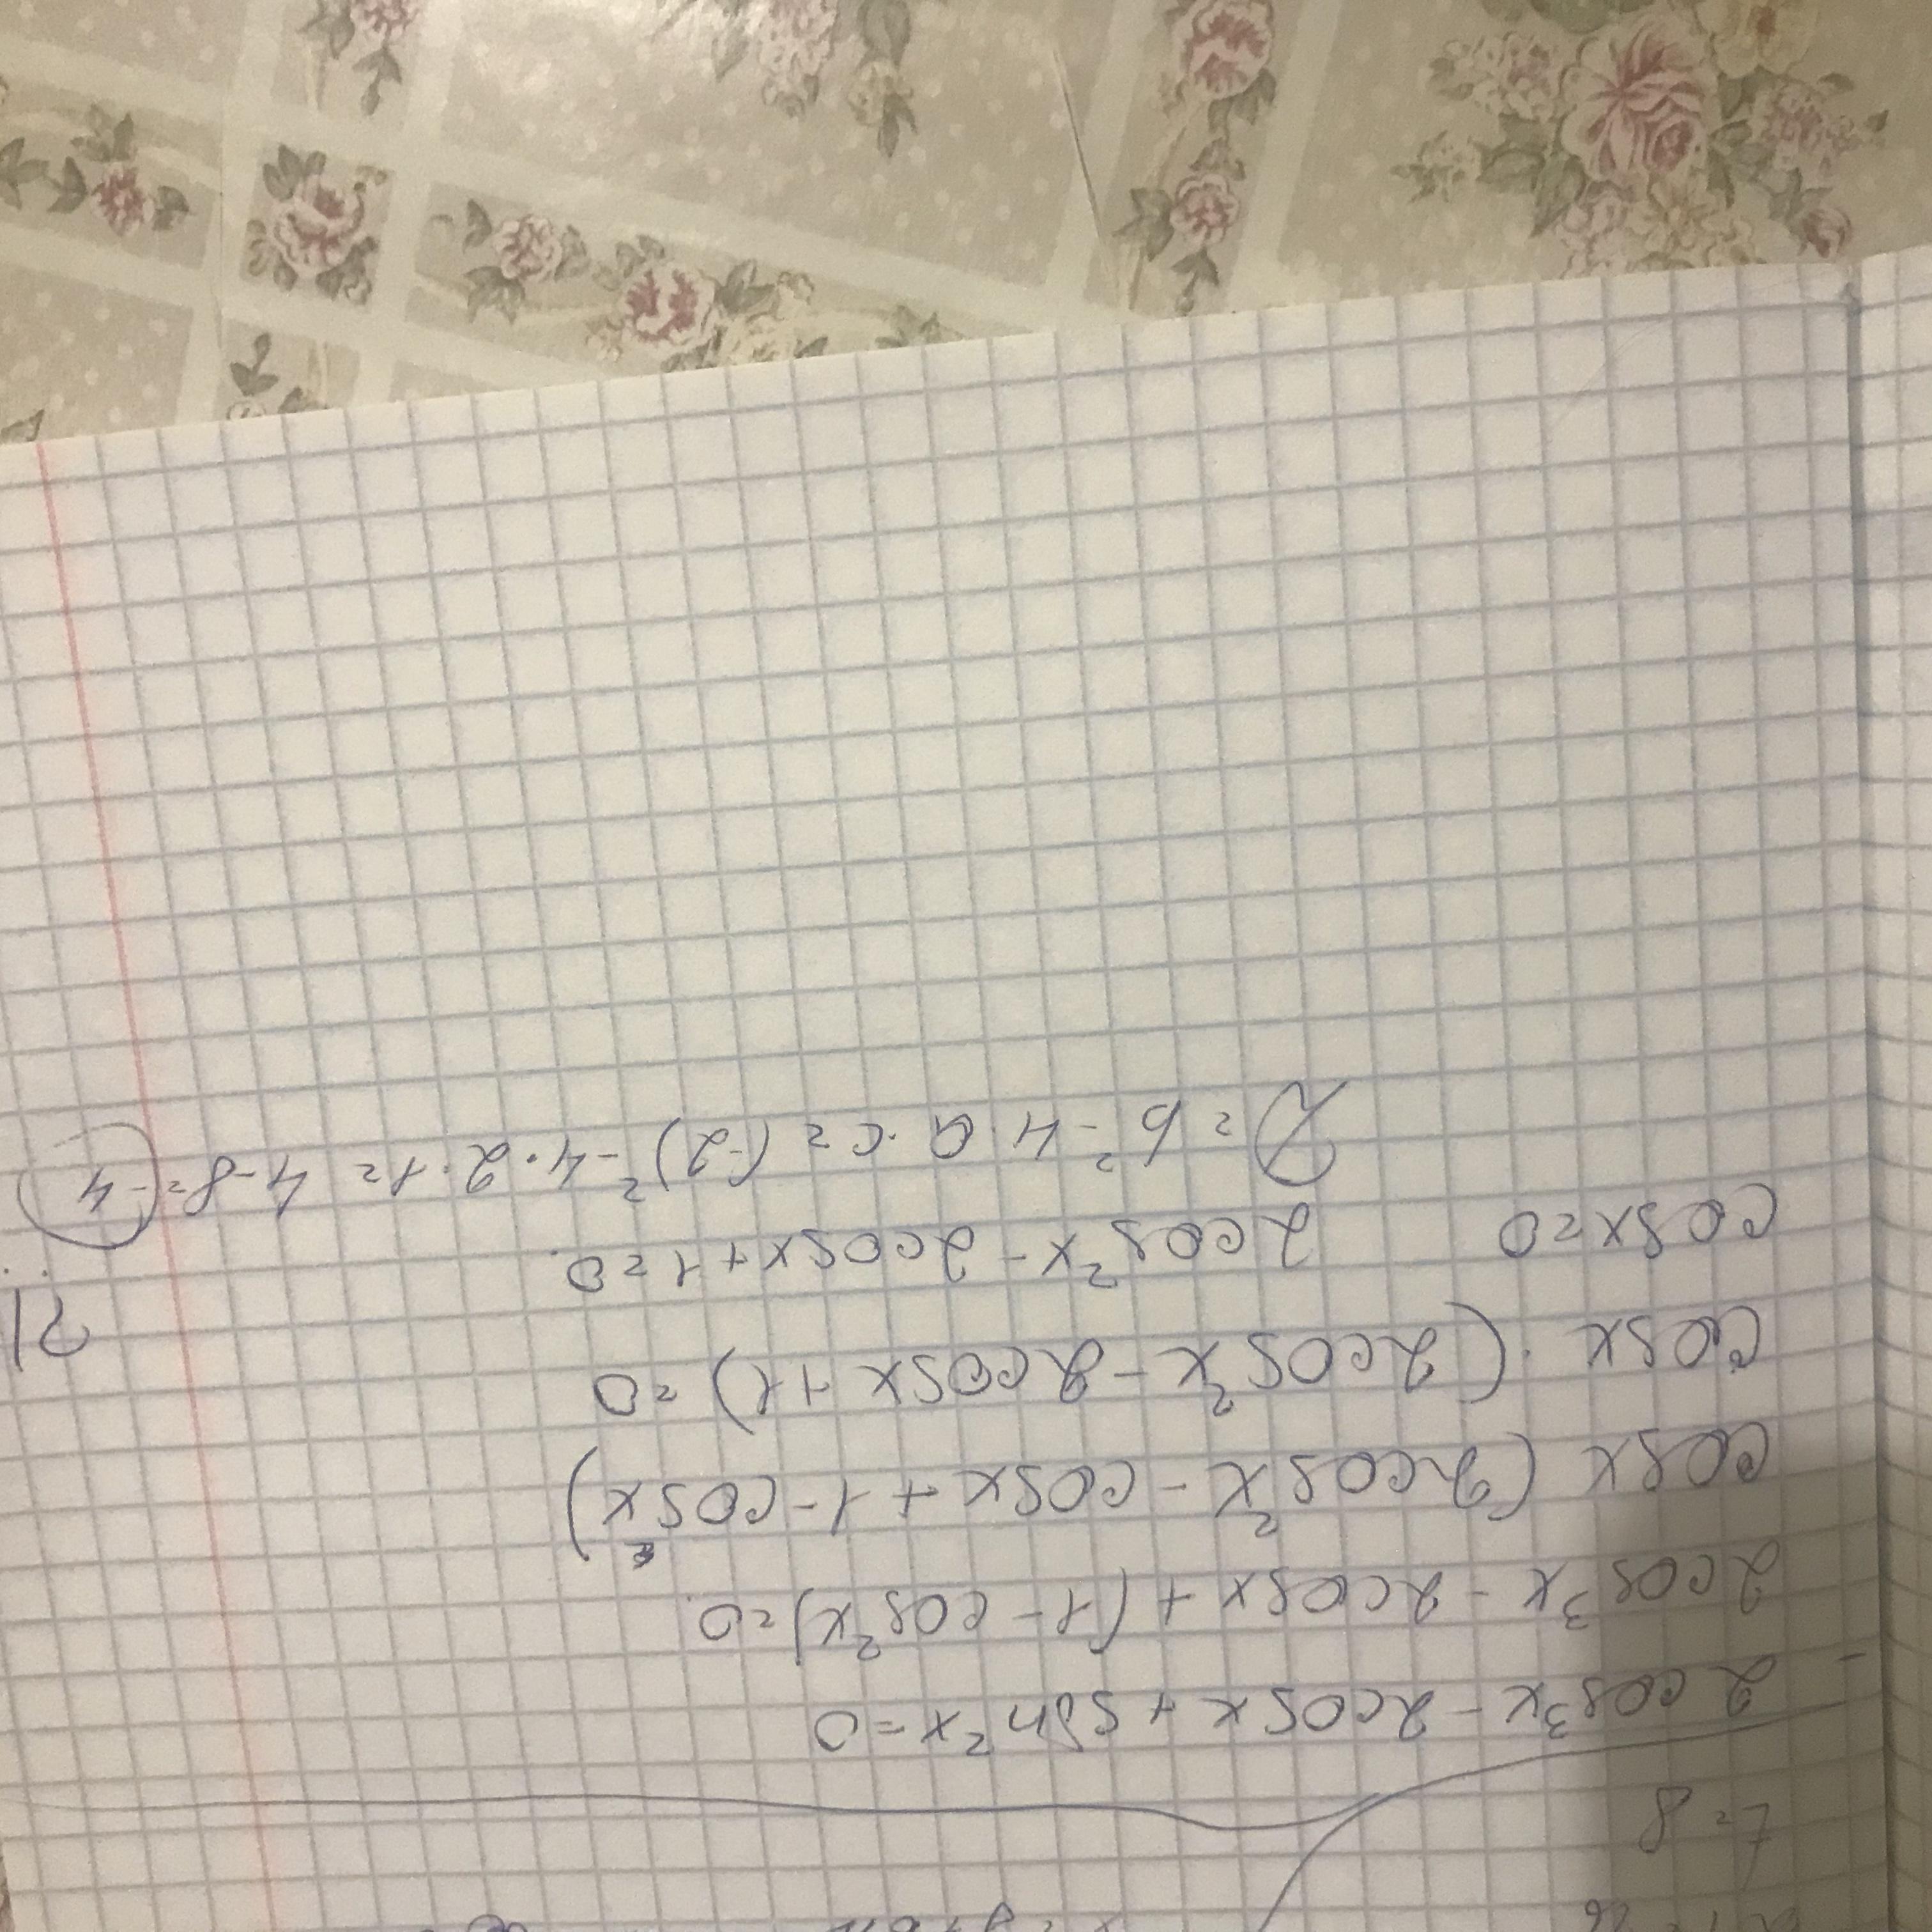 t=8
2cos³x-2cosx+sin²x=0
2cos³x-2cosx+(1-cos²x)=0.
cosx(2cos²x-cosx+1-cosx)
cosx·(2cos²x-2cosx+1)=0
?!
cosx=0 2cos²x-2cosx+1=0.
D=b²-4·a·c=(-2)²-4·2·1=4-8=-4